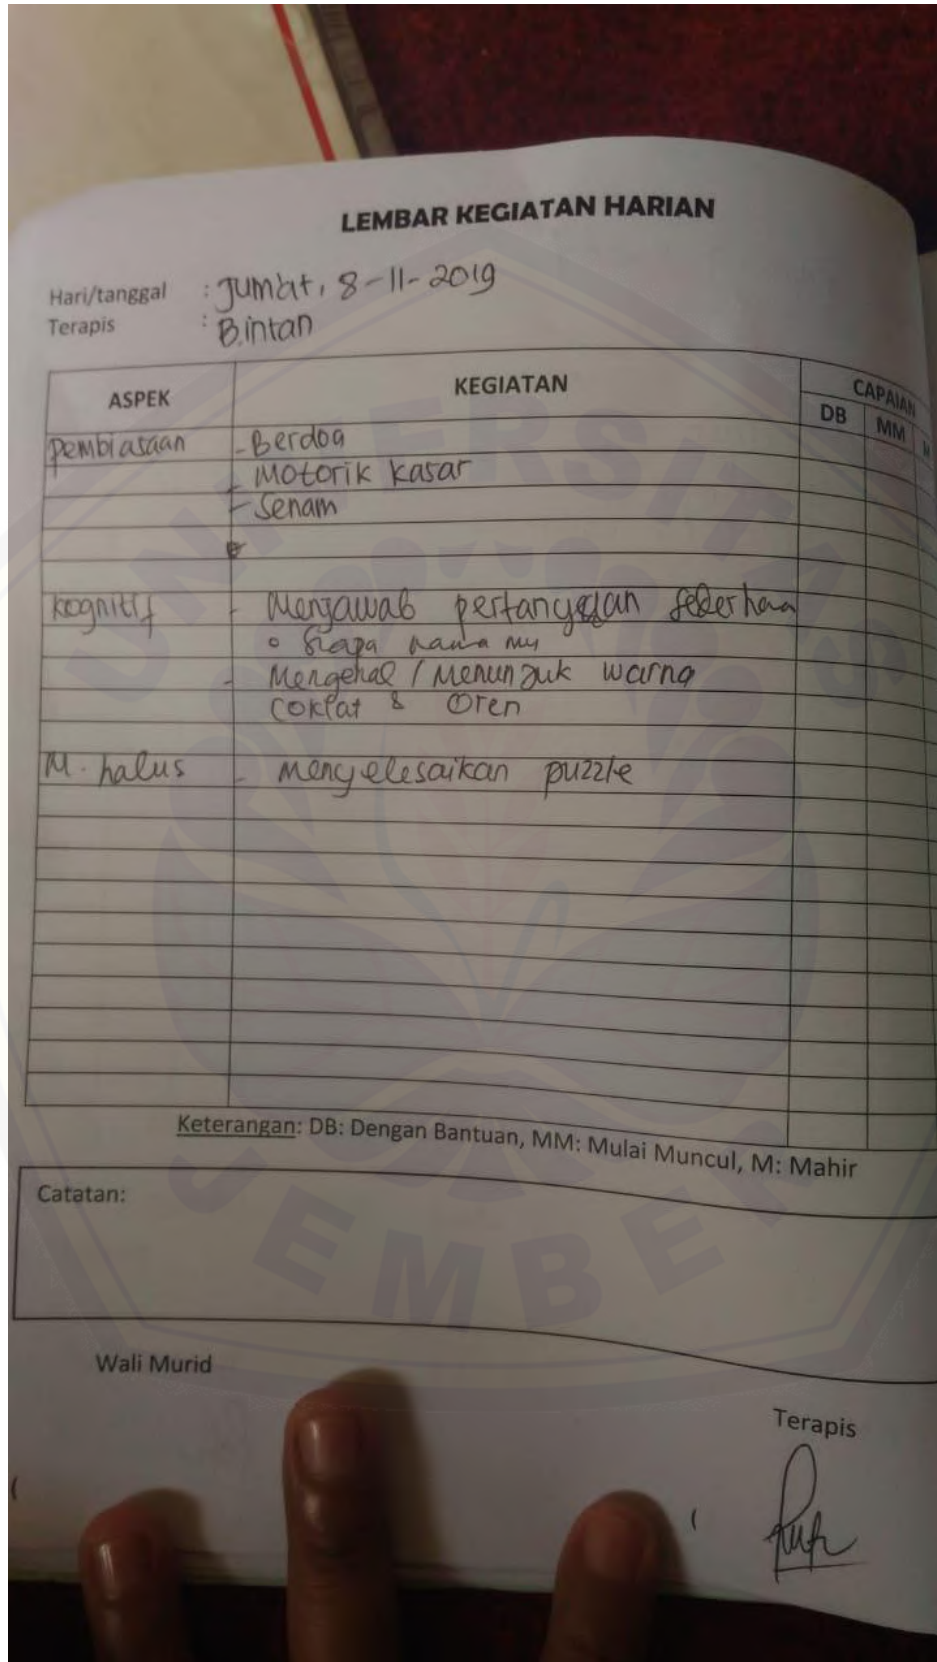 LEMBAR KEGIATAN HARIAN
Hari/tanggal : Jum'at, 8-11-2019
Terapis : B.intan
ASPEK KEGIATAN CAPAIAN
DB MM M
Pembiasaan - Berdoa
- Motorik kasar
- Senam
Kognitif - Menjawab pertanyaan sederhana
o Siapa nama mu
- Mengenal / Menunjuk warna
Coklat & Oren
M. halus - Menyelesaikan puzzle
Keterangan: DB: Dengan Bantuan, MM: Mulai Muncul, M: Mahir
Catatan:
Wali Murid
Terapis
( (
UNIVERSITAS
JEMBER